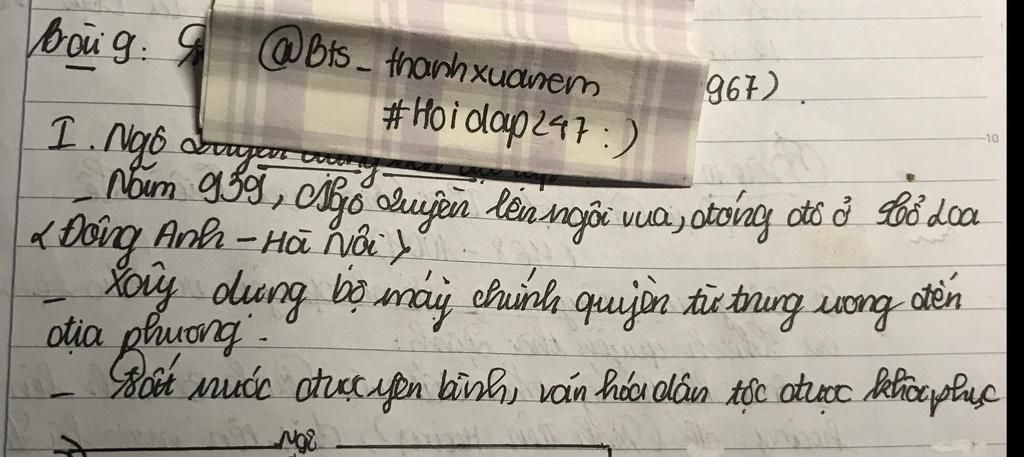 Bài 9:
@Bts_thanhxuanem
967).
#Hoidap247:)
I. Ngô Quyền
- Năm 939, Ngô Quyền lên ngôi vua, đóng đô ở Cổ Loa
<Đông Anh - Hà Nội>
- Xây dựng bộ máy chính quyền từ trung ương đến
địa phương.
- Đất nước được yên bình, văn hóa dân tộc được khôi phục
Ngô